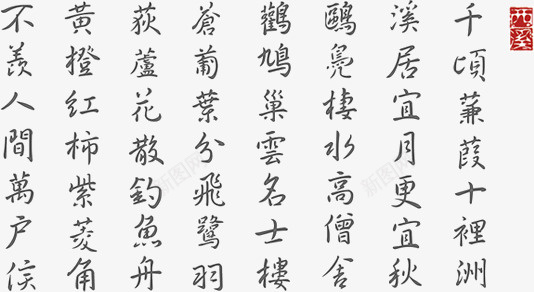 西溪
千頃蒹葭十裡洲
溪居宜月更宜秋
鷗鳧棲水高僧舍
鸛鳩巢雲名士樓
蒼葡葉分飛鷺羽
荻蘆花散釣魚舟
黃橙紅柿紫菱角
不羨人間萬戶侯
新图网
新图网